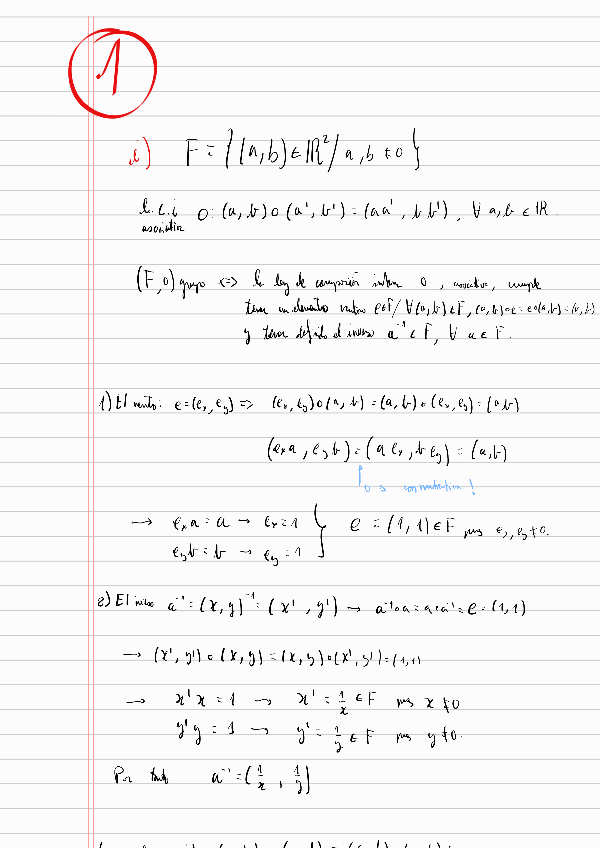 1
i) F = {(a,b) ∈ ℝ² / a,b ≠ 0}
l.c.i o: (a,b) o (a',b') = (aa', bb'), ∀ a,b ∈ ℝ.
asociativa
(F,o) grupo <=> la ley de composición interna o, asociativa, cumple
tener un elemento neutro e∈F / ∀(a,b)∈F, (a,b)oe = eo(a,b) = (a,b)
y tener definido el inverso a⁻¹ ∈ F, ∀ a ∈ F.
1) El neutro: e = (eₓ, e_y) => (eₓ, e_y) o (a,b) = (a,b) o (eₓ, e_y) = (a,b)
(eₓa, e_yb) = (a eₓ, b e_y) = (a,b)
o es conmutativa!
→ eₓa = a → eₓ = 1 } e = (1,1) ∈ F pues eₓ, e_y ≠ 0.
e_yb = b → e_y = 1
2) El inverso a⁻¹ = (x,y)⁻¹ = (x', y') → a⁻¹oa = aoa⁻¹ = e = (1,1)
→ (x', y') o (x,y) = (x,y) o (x', y') = (1,1)
→ x'x = 1 → x' = 1/x ∈ F pues x ≠ 0
y'y = 1 → y' = 1/y ∈ F pues y ≠ 0.
Por tanto a⁻¹ = (1/x, 1/y)